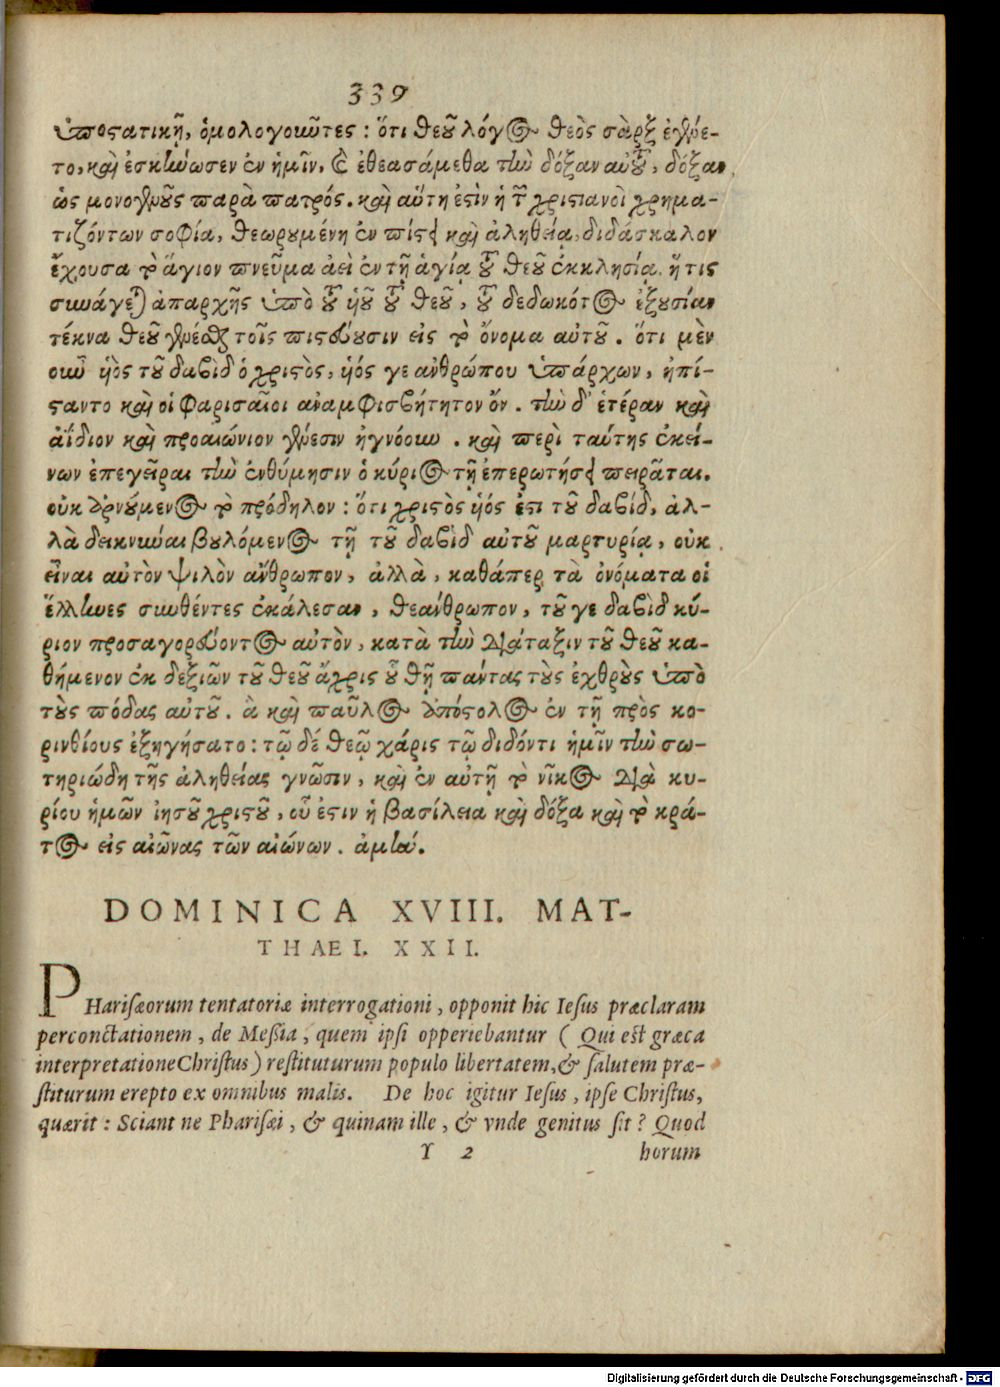 339
ὑποστατικῇ, ὁμολογοῦντες : ὅτι θεοῦ λόγος θεὸς σὰρξ ἐγένε-
το, καὶ ἐσκήνωσεν ἐν ἡμῖν, καὶ ἐθεασάμεθα τὴν δόξαν αὐτοῦ, δόξαν
ὡς μονογενοῦς παρὰ πατρός. καὶ αὕτη ἐστὶν ἡ τῶν χριστιανοὶ χρημα-
τιζόντων σοφία, θεωρουμένη ἐν πίστει καὶ ἀληθείᾳ, διδάσκαλον
ἔχουσα τὸ ἅγιον πνεῦμα ἀεὶ ἐν τῇ ἁγίᾳ τοῦ θεοῦ ἐκκλησίᾳ, ἥτις
συνάγεται ἀπαρχῆς ὑπὸ τοῦ ὑοῦ τοῦ θεοῦ, τοῦ δεδωκότος ἐξουσίαν
τέκνα θεοῦ γενέσθαι τοῖς πιστεύουσιν εἰς τὸ ὄνομα αὐτοῦ. ὅτι μὲν
οὖν ὑὸς τοῦ δαβὶδ ὁ χριστὸς, ὑός γε ἀνθρώπου ὑπάρχων, ἠπί-
σταντο καὶ οἱ φαρισαῖοι ἀναμφισβήτητον ὄν. τὴν δ' ἑτέραν καὶ
ἀΐδιον καὶ προαιώνιον γένεσιν ἠγνόουν. καὶ περὶ ταύτης ἐκεί-
νων ἐπεγεῖραι τὴν ἐνθύμησιν ὁ κύριος τῇ ἐπερωτήσει πειρᾶται.
οὐκ ἀρνούμενος τὸ πρόδηλον : ὅτι χριστὸς ὑός ἐστι τοῦ δαβίδ, ἀλ-
λὰ δεικνύναι βουλόμενος τῇ τοῦ δαβὶδ αὐτοῦ μαρτυρίᾳ, οὐκ
εἶναι αὐτὸν ψιλὸν ἄνθρωπον, ἀλλὰ, καθάπερ τὰ ὀνόματα οἱ
ἕλληνες συνθέντες ἐκάλεσαν, θεάνθρωπον, τοῦ γε δαβὶδ κύ-
ριον προσαγορεύοντος αὐτὸν, κατὰ τὴν διάταξιν τοῦ θεοῦ κα-
θήμενον ἐκ δεξιῶν τοῦ θεοῦ ἄχρις οὗ θῇ πάντας τοὺς ἐχθροὺς ὑπὸ
τοὺς πόδας αὐτοῦ. ἃ καὶ παῦλος ἀπόστολος ἐν τῇ πρὸς κο-
ρινθίους ἐξηγήσατο : τῷ δὲ θεῷ χάρις τῷ διδόντι ἡμῖν τὴν σω-
τηριώδη τῆς ἀληθείας γνῶσιν, καὶ ἐν αὐτῇ τὸ νῖκος διὰ κυ-
ρίου ἡμῶν ἰησοῦ χριστοῦ, οὗ ἐστιν ἡ βασίλεια καὶ δόξα καὶ τὸ κρά-
τος εἰς αἰῶνας τῶν αἰώνων. ἀμήν.
DOMINICA XVIII. MAT-
THAEI. XXII.
PHariſæorum tentatoriæ interrogationi, opponit hic Ieſus præclaram
percontationem, de Meßia, quem ipſi opperiebantur ( Qui est græca
interpretatione Chriſtus) reſtituturum populo libertatem, & ſalutem præ-
ſtiturum erepto ex omnibus malis. De hoc igitur Ieſus, ipſe Chriſtus,
quærit : Sciant ne Phariſæi, & quinam ille, & vnde genitus ſit? Quod
Y 2 horum
Digitalisierung gefördert durch die Deutsche Forschungsgemeinschaft - DFG